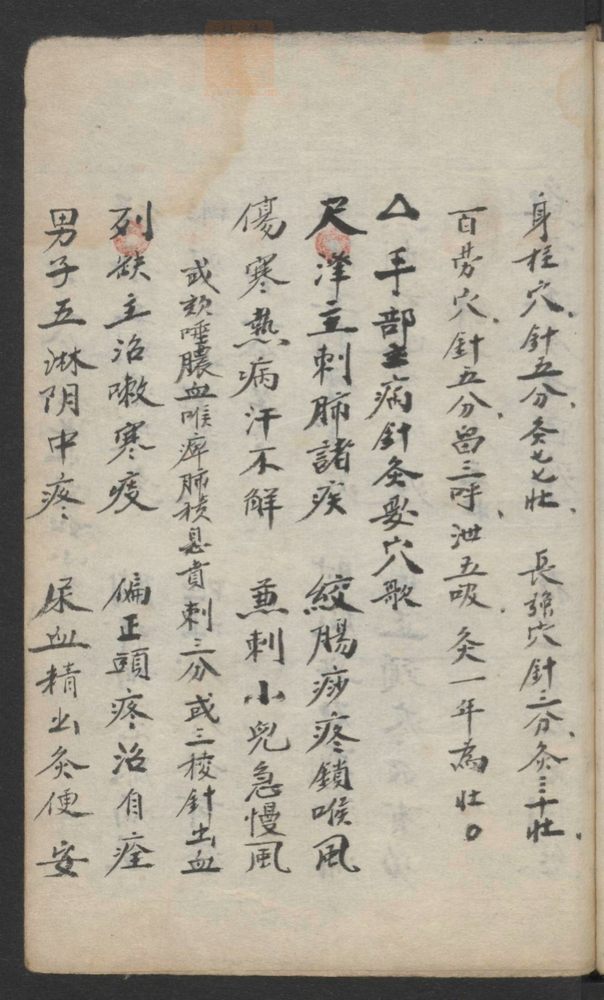 身柱穴針五分灸七七壯 長強穴針三分灸三十壯
百劳穴針五分畄三呼泄五吸 灸一年為壯
△手部主病針灸要穴歌
尺澤主刺肺諸疾 絞腸痧疼鎖喉風
傷寒熱病汗不解 兼刺小兒急慢風
或欬唾膿血喉痺肺積息賁刺三分或三棱針出血
列缺主治嗽寒痰 偏正頭疼治自痊
男子五淋阴中疼 尿血精出灸便安